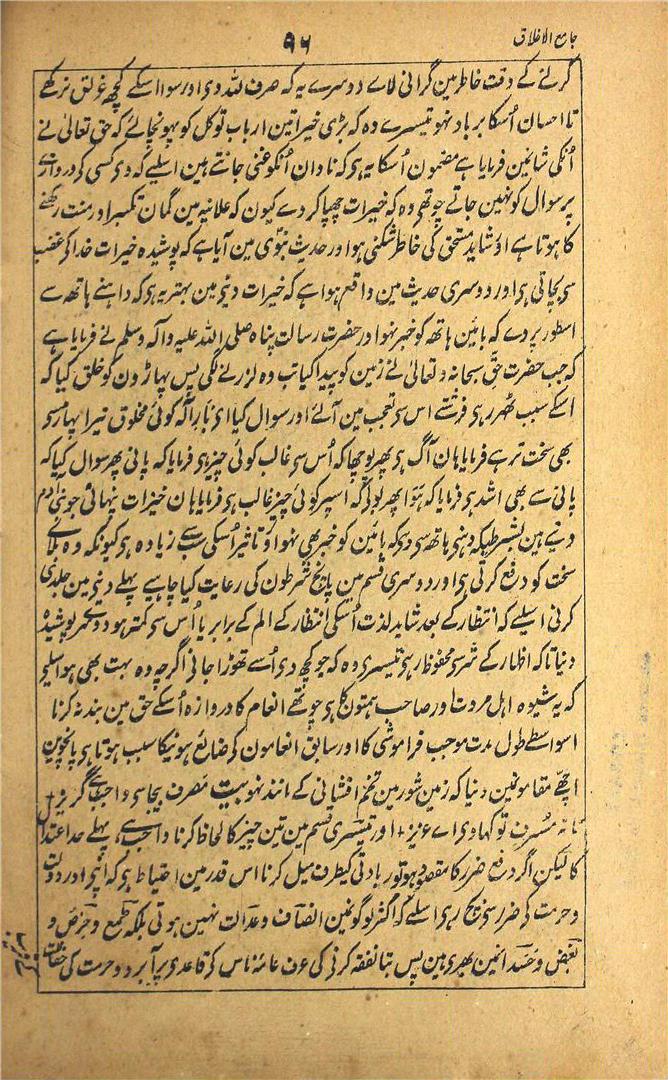 جامع الاخلاق
۹۶
کرنے کے وقت خاطر مین گرانی نلاے دوسرے یہ کہ صرف للہ دی اور سوا اسکے کچھ غرض نرکھے
تا احسان اُسکا برباد نہو تیسرے وہ کہ بڑی خیراتین ارباب توکل کو پہونچائے کہ حق تعالیٰ نے
اُنکی شانمین فرمایا ہے مضمون اُسکا یہ ہی کہ نادان اُنکو غنی جانتے ہین اسلیے کہ وی کسی کی دروازے
پر سوال کو نہین جاتے چوتھی وہ کہ خیرات چھپا کر دے کیون کہ علانیہ مین گمان تکبر اور منت رکھنے
کا ہوتا ہے اور شاید مستحق کی خاطر شکنی ہو اور حدیث نبوی مین آیا ہے کہ پوشیدہ خیرات خدا کی غضب
سی بچاتی ہی اور دوسری حدیث مین واقع ہوا ہے کہ خیرات دینی مین بہتر یہ ہی کہ داہنے ہاتھ سے
اسطور پر دے کہ بائین ہاتھ کو خبر نہو اور حضرت رسالت پناہ صلی اللہ علیہ وآلہ وسلم نے فرمایا ہے
کہ جب حضرت حق سبحانہ و تعالیٰ نے زمین کو پیدا کیا تب وہ لرزنے لگی پس پہاڑون کو خلق کیا کہ
اسکے سبب ٹھہر رہی فرشتے اس سی تعجب مین آئے اور سوال کیا ای بار الٰہ کوئی مخلوق تیرا پہاڑ سی
بھی سخت تر ہے فرمایا ہان آگ ہی پھر پوچھا کہ اُس سی غالب کوئی چیز ہی فرمایا کہ پانی پھر سوال کیا کہ
پانی سے بھی اشد ہی فرمایا کہ ہوا پھر بولی کہ اسپر کوئی چیز غالب ہی فرمایا ہان خیرات پنہانی جو بنی آدم
دیتے ہین بشرطیکہ دہنی ہاتھ سی دی کہ بائین کو خبر بھی نہو اور تاثیر اُسکی سب سے زیادہ ہی کیونکہ وہ بلاے
سخت کو دفع کرتی ہی اور دوسری قسم مین پانچ شرطون کی رعایت کیا چاہیے پہلے دینی مین جلدی
کرنی اسلیے کہ انتظار کے بعد شاید لذت اُسکی انتظار کے الم کے برابر یا اُس سی کمتر ہو دوسرے پوشیدہ
دینا تا کہ اظہار کے شر سی محفوظ رہی تیسری وہ کہ جو کچھ دی اُسے تھوڑا جانی اگرچہ وہ بہت بھی ہو اسلیے
کہ یہ شیوہ اہل مروت اور صاحب ہمتون کا ہی چوتھے انعام کا دروازہ اُسکے حق مین بند نہ کرنا
اسواسطے طول مدت موجب فراموشی کا اور سابق انعامون کی ضائع ہونیکا سبب ہوتا ہی پانچوین
اچھے مقامونمین دینا کہ زمین شور مین تخم افشانی کے مانند نہو بیت مصرف بیجا سی واجب ہے گریز +
تا نہ مسرف تو کہاوی اے عزیز + اور تیسری قسم مین تین چیز کا لحاظ کرنا واجب ہے، پہلے حد اعتدال
کا لیکن اگر دفع ضرر کا مقصود ہو تو زیادتی کیطرف میل کرنا اس قدر مین احتیاط ہی کہ آبرو اور دولت
و حرمت کی ضرر سی بچ رہی اسلیے کہ اکثر لوگونمین انصاف و عدالت نہین ہوتی بلکہ طمع و حرص و
بغض و حسد انمین بھری ہین پس تب نفقہ کرنی کی عرف عامۂ ناس کی قاعدی پر آبرو و حرمت کی حفاظت